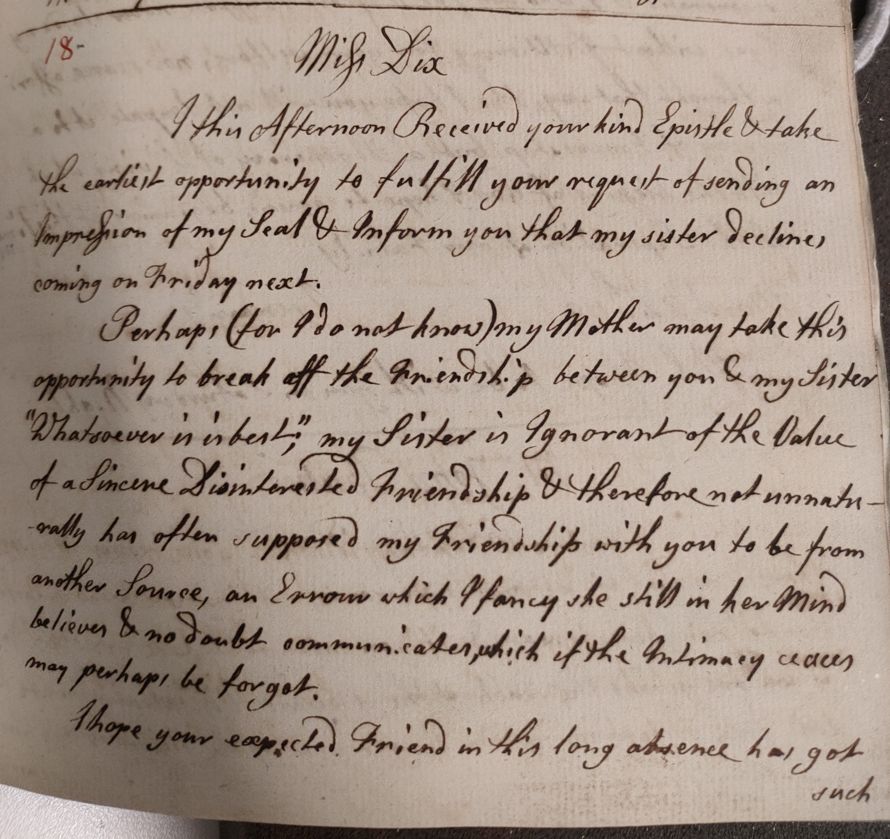 18-
Miss Dix
I this Afternoon Received your kind Epistle & take
the earliest opportunity to fulfill your request of sending an
Impression of my Seal & Inform you that my sister declines
coming on Friday next.
Perhaps (for I do not know) my Mother may take this
opportunity to break off the Friendship between you & my Sister
"Whatsoever is is best"; my Sister is Ignorant of the Value
of a Sincere Disinterested Friendship & therefore not unnatu-
-rally has often supposed my Friendship with you to be from
another Source, an Errour which I fancy she still in her Mind
believes & no doubt communicates, which if the Intimacy ceaces
may perhaps be forgot.
I hope your expected Friend in this long absence has got
such